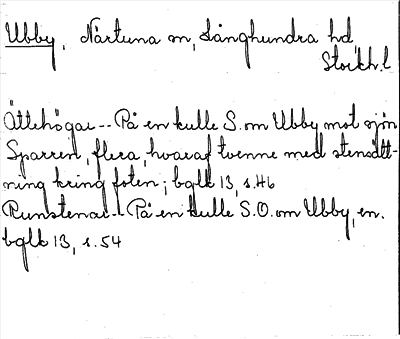 Ubby, Närtuna sn, Långhundra hd
Stockh. l
Ättehögar -- På en kulle S. om Ubby mot sjön
Sparren, flera, hvaraf tvenne med stensätt-
ning kring foten; bglk 13, s. 46
Runstenar -- På en kulle S.O. om Ubby, en.
bglk 13, s. 54